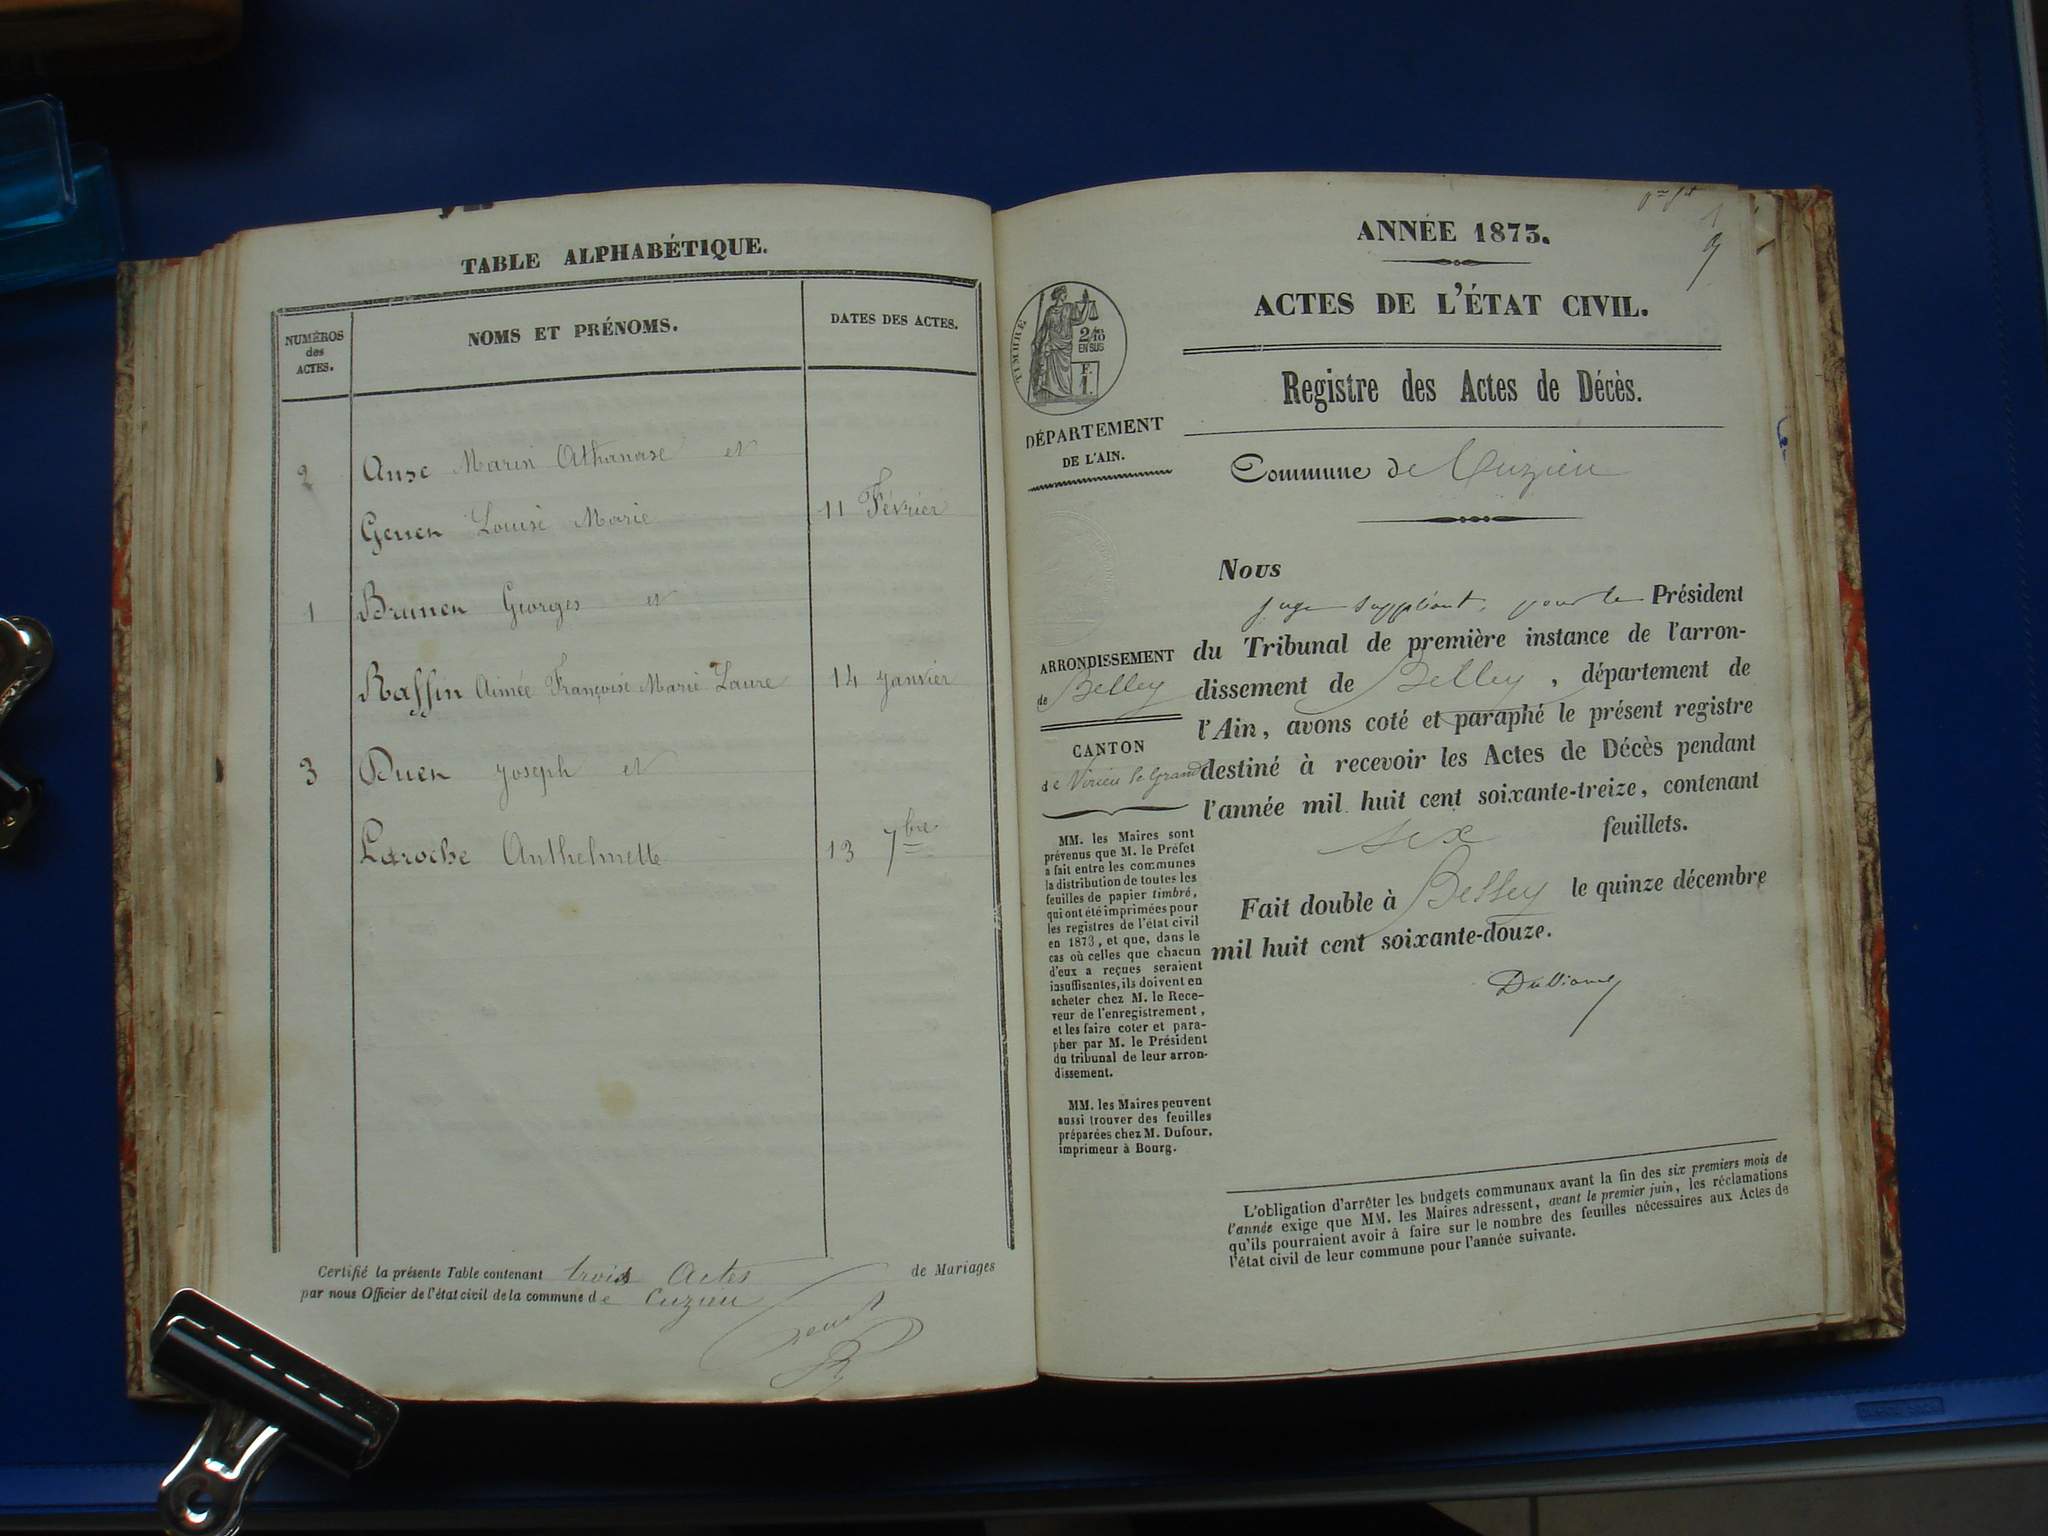 TABLE ALPHABÉTIQUE.
NUMÉROS
des
ACTES.
NOMS ET PRÉNOMS.
DATES DES ACTES.
2 Anse Marin Athanase et
Louise Marie 11 Février
1 Georges et
Raffin Aimée Françoise Marie Laure 14 janvier
3 Joseph et
Laroche Anthelmette 13 7bre
Certifié la présente Table contenant trois Actes de Mariages
par nous Officier de l'état civil de la commune de Cuzieu
ANNÉE 1873.
ACTES DE L'ÉTAT CIVIL.
Registre des Actes de Décès.
TIMBRE
2/10
EN SUS
F.
1.
DÉPARTEMENT
DE L'AIN.
Commune de Cuzieu
ARRONDISSEMENT
de Belley
CANTON
de Virieu le Grand
MM. les Maires sont
prévenus que M. le Préfet
a fait entre les communes
la distribution de toutes les
feuilles de papier timbré,
qui ont été imprimées pour
les registres de l'état civil
en 1873, et que, dans le
cas où celles que chacun
d'eux a reçues seraient
insuffisantes, ils doivent en
acheter chez M. le Rece-
veur de l'enregistrement,
et les faire coter et para-
pher par M. le Président
du tribunal de leur arron-
dissement.
MM. les Maires peuvent
aussi trouver des feuilles
préparées chez M. Dufour,
imprimeur à Bourg.
Nous
juge suppléant, pour le Président
du Tribunal de première instance de l'arron-
dissement de Belley, département de
l'Ain, avons coté et paraphé le présent registre
destiné à recevoir les Actes de Décès pendant
l'année mil huit cent soixante-treize, contenant
six feuillets.
Fait double à Belley le quinze décembre
mil huit cent soixante-douze.
L'obligation d'arrêter les budgets communaux avant la fin des six premiers mois de
l'année exige que MM. les Maires adressent, avant le premier juin, les réclamations
qu'ils pourraient avoir à faire sur le nombre des feuilles nécessaires aux Actes de
l'état civil de leur commune pour l'année suivante.